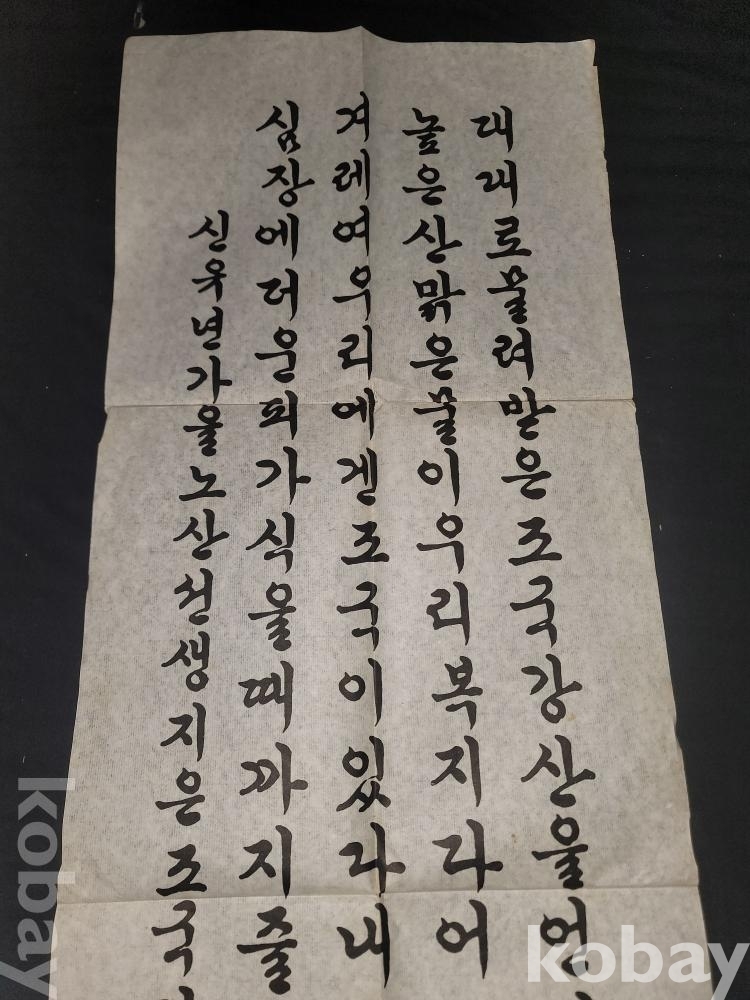 대대로물려받은조국강산을
높은산맑은물이우리복지다어
겨레여우리에겐조국이있다내
심장에더운피가식을때까지줄
신유년가을노산선생지은조국
kobay
kobay